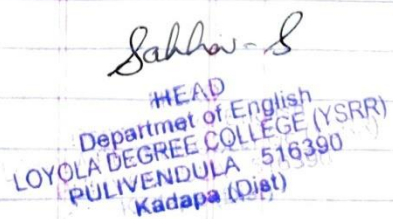 HEAD
Departmet of English
LOYOLA DEGREE COLLEGE (YSRR)
PULIVENDULA 516390
Kadapa (Dist)